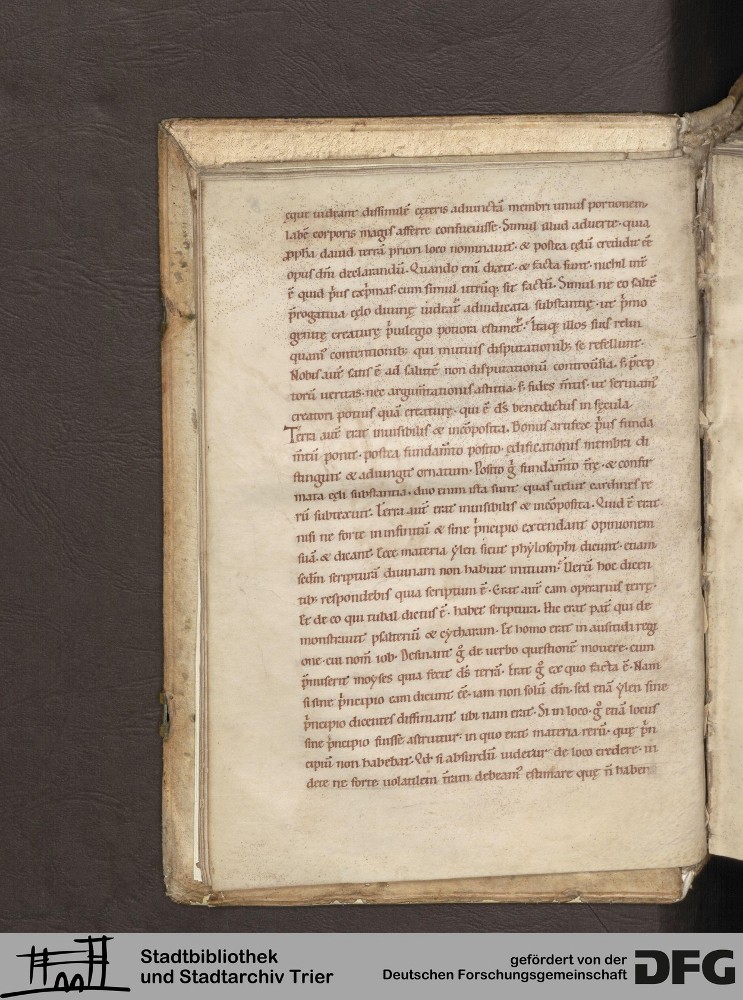 ęque uideant dissimilē cęteris adiunctā membri unius portionem.
labē corporis magis afferre consueuisse. Simul illud aduerte. quia
ꝓpha dauid terrā priori loco nominauit. & postea cęlū credidit ēē
opus dn̄i declarandū. Quando eni dixit. & facta sunt. nichil int̄
ē quid p̄us exp̄mas. cum simul utrūq; sit factū. Simul ne eo saltē
p̄rogatiua cęlo diuinę uideat᷑ adiudicata substantię. ut p̄mo
genitę creaturę p̄uilegio potiora estimet᷑. Itaq; illos suis relin
quam᷒ contentionib; qui mutuis disputationib; se refellunt.
Nobis aut̄ satis ē ad salutē non disputationū controuersia. s; p̄cep
torū ueritas. nec argum̄tationis astutia. s; fides m̄tis. ut seruiam᷒
creatori potius quā creaturę. qui ē ds̄ benedictus in sęcula.
Terra aut̄ erat inuisibilis & incōposita. Bonus artifex p̄us funda
m̄tū ponit. postea fundam̄to posito. ędificationis membra di
stinguit & adiungit ornatum. Posito g̊ fundam̄to t̄rę. & confir
mata cęli substantia. duo enim ista sunt quasi uelut cardines re
rū subtexuit. Terra aut̄ erat inuisibilis & incōposita. Quid ē erat.
nisi ne forte in infinitū & sine p̄ncipio extendant opinionem
suā. & dicant. Ecce materia ẏlen sicut phẏlosophi dicunt. etiam
sedm̄ scripturā diuinam non habuit initium. Verū hoc dicen
tib; respondebis quia scriptum ē. Erat aut̄ cain operarius terrę.
Et de eo qui tubal dictus ē. habet scriptura. Hic erat pat̄ qui de
monstrauit psalteriū & cẏtharam. Et homo erat in ausitidi regi
one. cui nom̄ iob. Desinant g̊ de uerbo questionē mouere. cum
p̄miserit moẏses quia fecit ds̄ terrā. Erat g̊ ex quo facta ē. Nam
si sine p̄ncipio eam dicunt ēē. iam non solū dm̄. sed etiā ẏlen sine
p̄ncipio dicentes diffiniant ubi nam erat. Si in loco. g̊ etiā locus
sine p̄ncipio fuisse astruitur. in quo erat materia rerū. quę p̄n
cipiū non habebat. Qd̄ si absurdū uidetur de loco credere. ui
dete ne forte uolatilem t̄ram debeam᷒ estimare quę n̄ haben
Stadtbibliothek
und Stadtarchiv Trier
gefördert von der
Deutschen Forschungsgemeinschaft
DFG